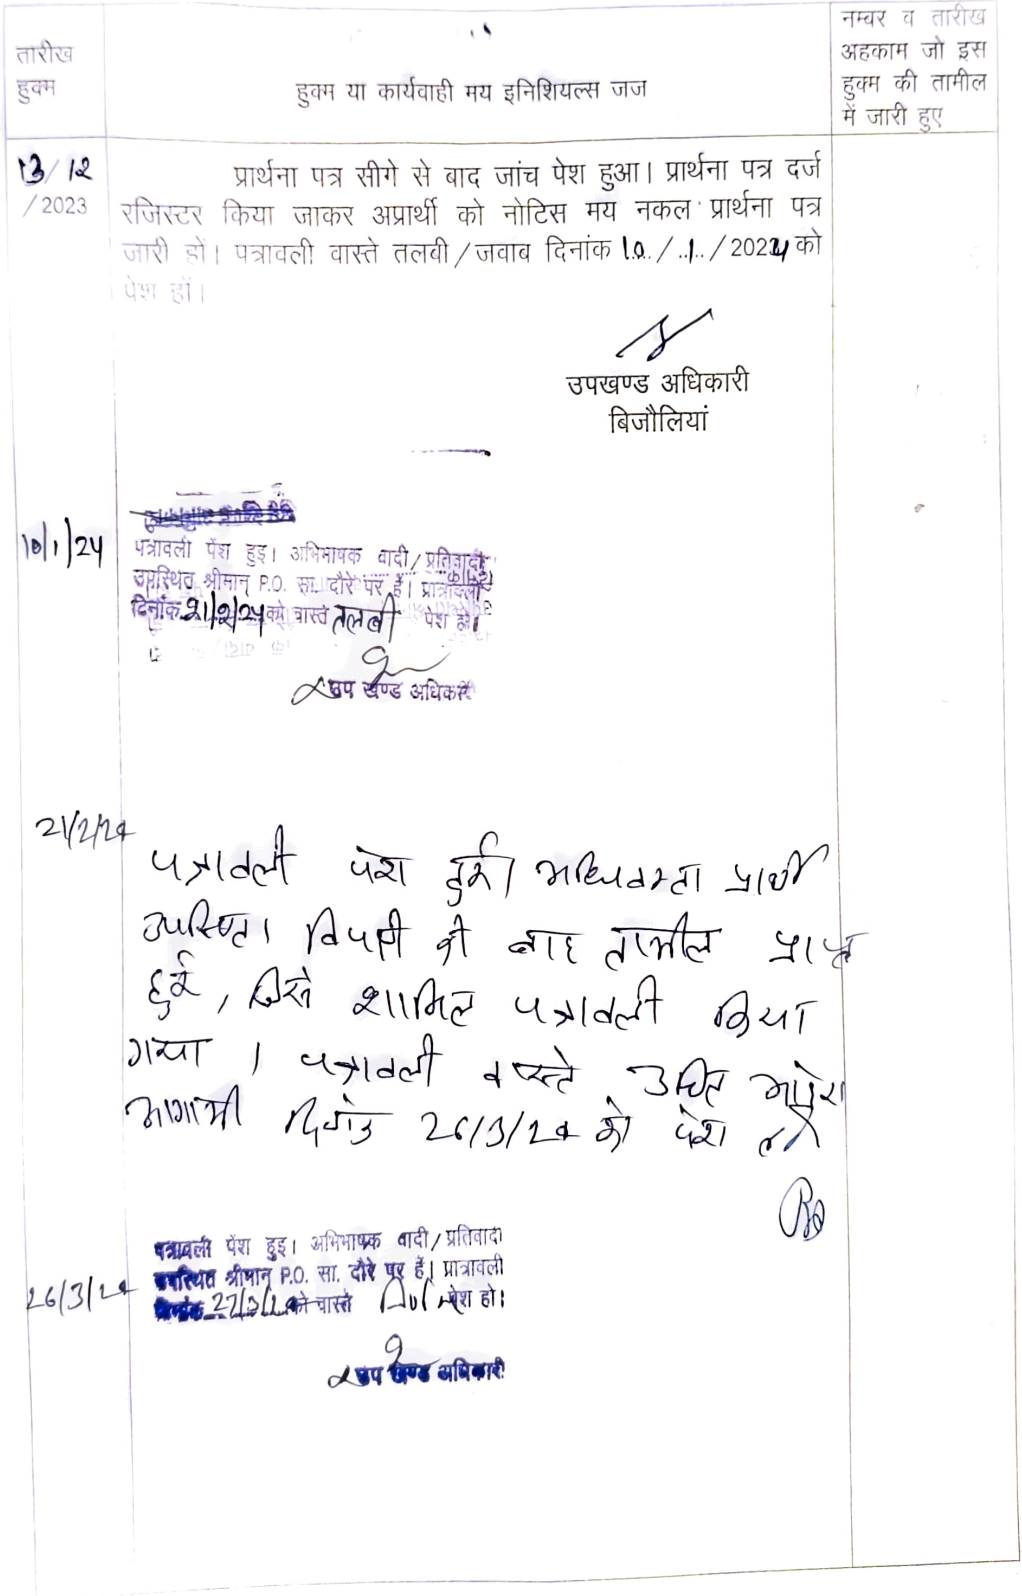 तारीख
हुक्म
हुक्म या कार्यवाही मय इनिशियल्स जज
नम्बर व तारीख
अहकाम जो इस
हुक्म की तामील
में जारी हुए
13/12
/2023
प्रार्थना पत्र सीगे से बाद जांच पेश हुआ। प्रार्थना पत्र दर्ज
रजिस्टर किया जाकर अप्रार्थी को नोटिस मय नकल प्रार्थना पत्र
जारी हों। पत्रावली वास्ते तलबी/जवाब दिनांक 10./.1./2024 को
पेश हों।
उपखण्ड अधिकारी
बिजौलियां
10/1/24
पत्रावली पेंश हुइ। अभिभाषक वादी/प्रतिवादी
उपस्थित श्रीमान् P.O. सा. दौरे पर हैं। प्रात्रावली
दिनांक 21/2/24 को वास्ते तलबी पेश हो।
उप खण्ड अधिकारी
21/2/24
पत्रावली पेश हुई। अधिवक्ता प्रार्थी
उपस्थित। विपक्षी की बाद तामील प्राप्त
हुई, जिसे शामिल पत्रावली किया
गया। पत्रावली वास्ते उचित आदेश
आगामी दिनांक 26/3/24 को पेश हो
26/3/24
पत्रावली पेंश हुइ। अभिभाषक वादी/प्रतिवादी
उपस्थित श्रीमान् P.O. सा. दौरे पर हैं। प्रात्रावली
दिनांक 27/3/24 को वास्ते पेश हो।
उप खण्ड अधिकारी